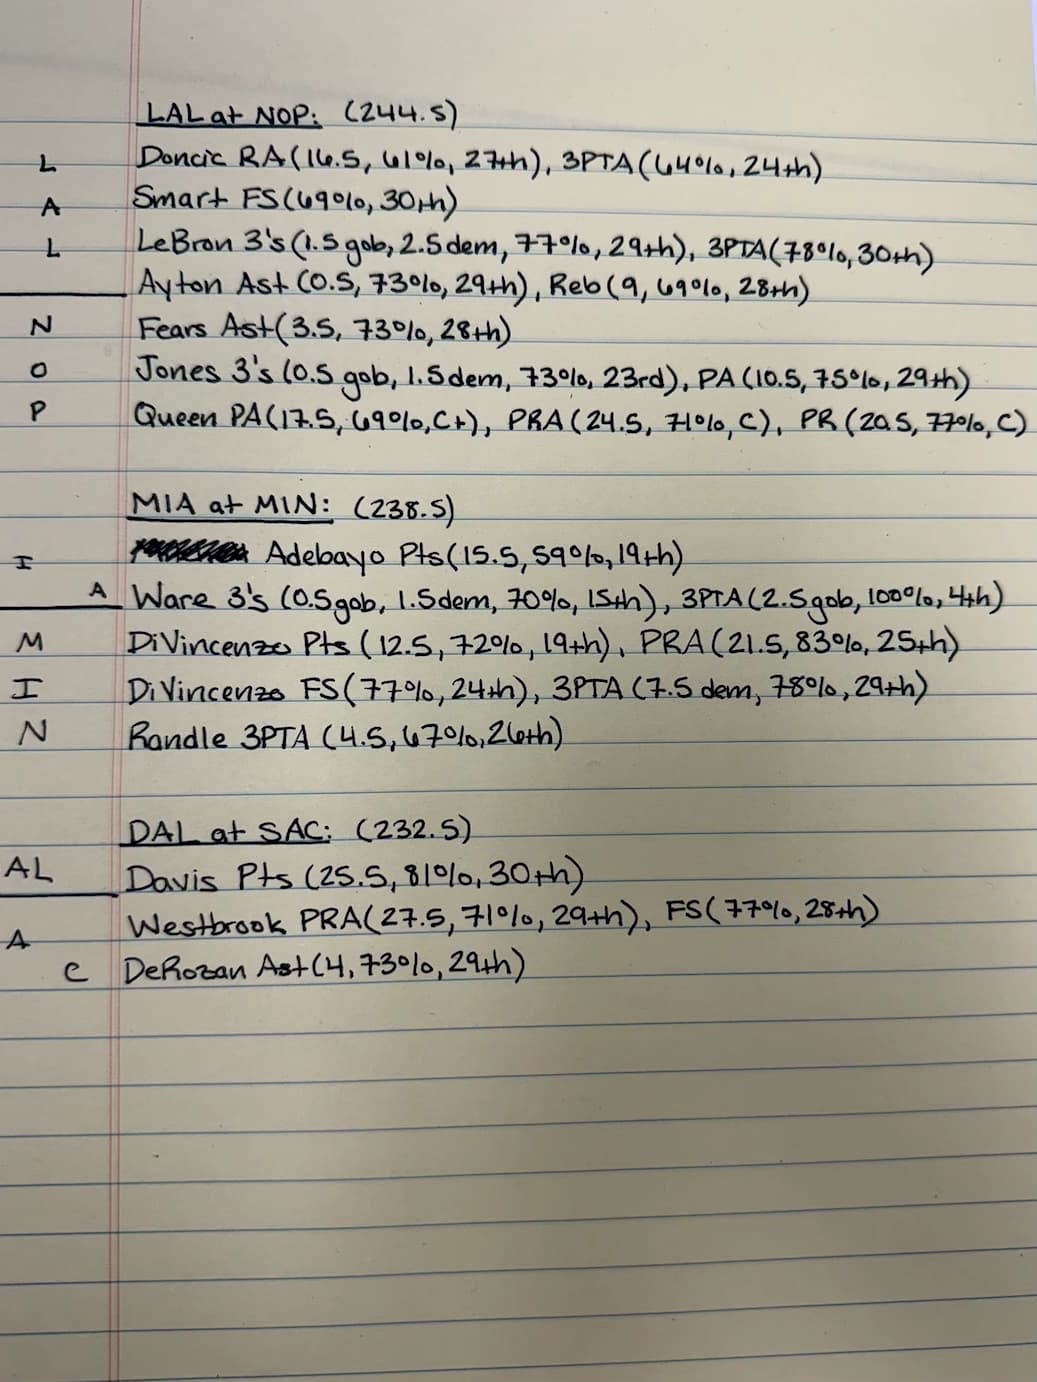 LAL at NOP: (244.5)
L Doncic RA (16.5, 61%, 27th), 3PTA (64%, 24th)
A Smart FS (69%, 30th)
L LeBron 3's (1.5 gob, 2.5 dem, 77%, 29th), 3PTA (78%, 30th)
Ayton Ast (0.5, 73%, 29th), Reb (9, 69%, 28th)
N Fears Ast (3.5, 73%, 28th)
O Jones 3's (0.5 gob, 1.5 dem, 73%, 23rd), PA (10.5, 75%, 29th)
P Queen PA (17.5, 69%, C+), PRA (24.5, 71%, C), PR (20.5, 77%, C)
MIA at MIN: (238.5)
I Adebayo Pts (15.5, 59%, 19th)
A Ware 3's (0.5 gob, 1.5 dem, 70%, 15th), 3PTA (2.5 gob, 100%, 4th)
M DiVincenzo Pts (12.5, 72%, 19th), PRA (21.5, 83%, 25th)
I DiVincenzo FS (77%, 24th), 3PTA (7.5 dem, 78%, 29th)
N Randle 3PTA (4.5, 67%, 26th)
DAL at SAC: (232.5)
AL Davis Pts (25.5, 81%, 30th)
A Westbrook PRA (27.5, 71%, 29th), FS (77%, 28th)
C DeRozan Ast (4, 73%, 29th)